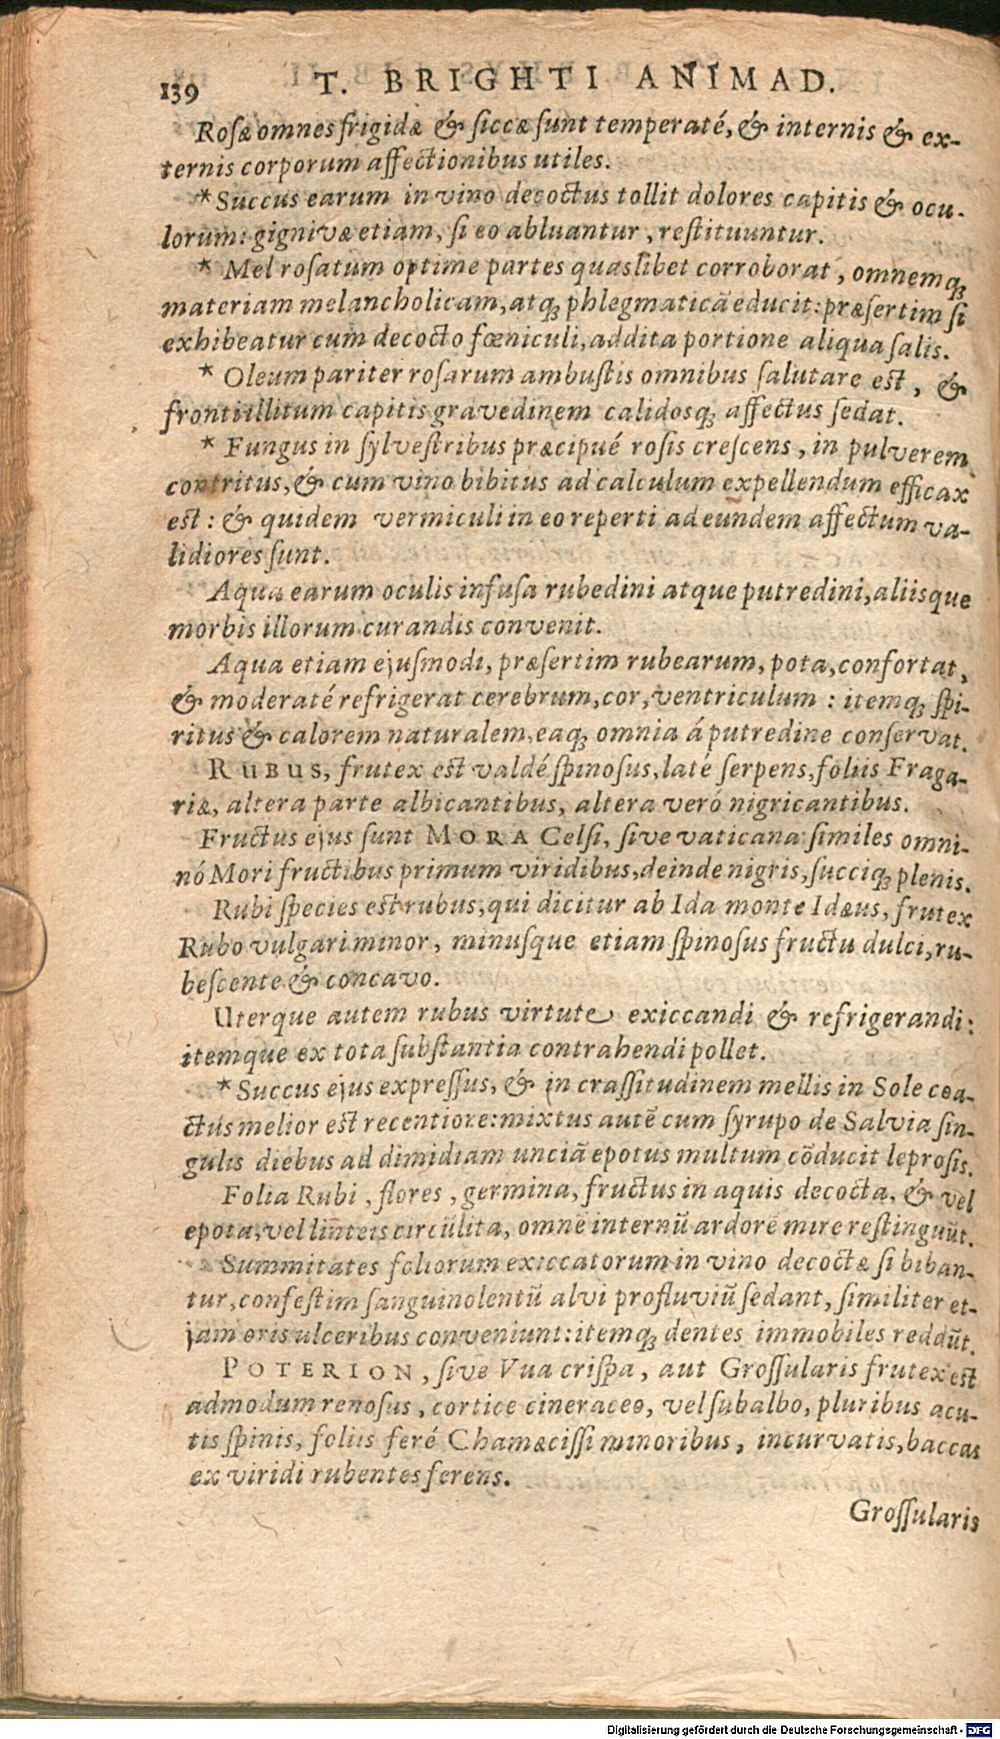 139 T. BRIGHTI ANIMAD.
Rosæ omnes frigidæ & siccæ sunt temperaté, & internis & ex-
ternis corporum affectionibus utiles.
*Succus earum in vino decoctus tollit dolores capitis & ocu-
lorum: gignivæ etiam, si eo abluantur, restituuntur.
* Mel rosatum optime partes quaslibet corroborat, omnemq;
materiam melancholicam, atq; phlegmaticã educit: præsertim si
exhibeatur cum decocto fœniculi, addita portione aliqua salis.
* Oleum pariter rosarum ambustis omnibus salutare est, &
fronti illitum capitis gravedinem calidosq; affectus sedat.
* Fungus in sylvestribus præcipué rosis crescens, in pulverem
contritus, & cum vino bibitus ad calculum expellendum efficax
est: & quidem vermiculi in eo reperti ad eundem affectum va-
lidiores sunt.
Aqua earum oculis infusa rubedini atque putredini, aliisque
morbis illorum curandis convenit.
Aqua etiam ejusmodi, præsertim rubearum, pota, confortat,
& moderaté refrigerat cerebrum, cor, ventriculum: itemq; spi-
ritus & calorem naturalem, eaq; omnia á putredine conservat.
RUBUS, frutex est valdé spinosus, laté serpens, foliis Fraga-
riæ, altera parte albicantibus, altera veró nigricantibus.
Fructus ejus sunt MORA Celsi, sive vaticana: similes omni-
nó Mori fructibus primum viridibus, deinde nigris, succiq; plenis.
Rubi species est rubus, qui dicitur ab Ida monte Idæus, frutex
Rubo vulgari minor, minusque etiam spinosus fructu dulci, ru-
bescente & concavo.
Uterque autem rubus virtute exiccandi & refrigerandi:
itemque ex tota substantia contrahendi pollet.
*Succus ejus expressus, & in crassitudinem mellis in Sole coa-
ctus melior est recentiore: mixtus autẽ cum syrupo de Salvia sin-
gulis diebus ad dimidiam unciã epotus multum cõducit leprosis.
Folia Rubi, flores, germina, fructus in aquis decocta, & vel
epota, vel linteis circũlita, omnẽ internũ ardorẽ mire restinguũt.
Summitates foliorum exiccatorum in vino decoctæ si biban-
tur, confestim sanguinolentũ alvi profluviũ sedant, similiter et-
jam oris ulceribus conveniunt: itemq; dentes immobiles reddũt.
POTERION, sive Vua crispa, aut Grossularis frutex est
admodum renosus, cortice cineraceo, vel subalbo, pluribus acu-
tis spinis, foliis feré Chamæcissi minoribus, incurvatis, baccas
ex viridi rubentes ferens.
Grossularis
Digitalisierung gefördert durch die Deutsche Forschungsgemeinschaft - DFG